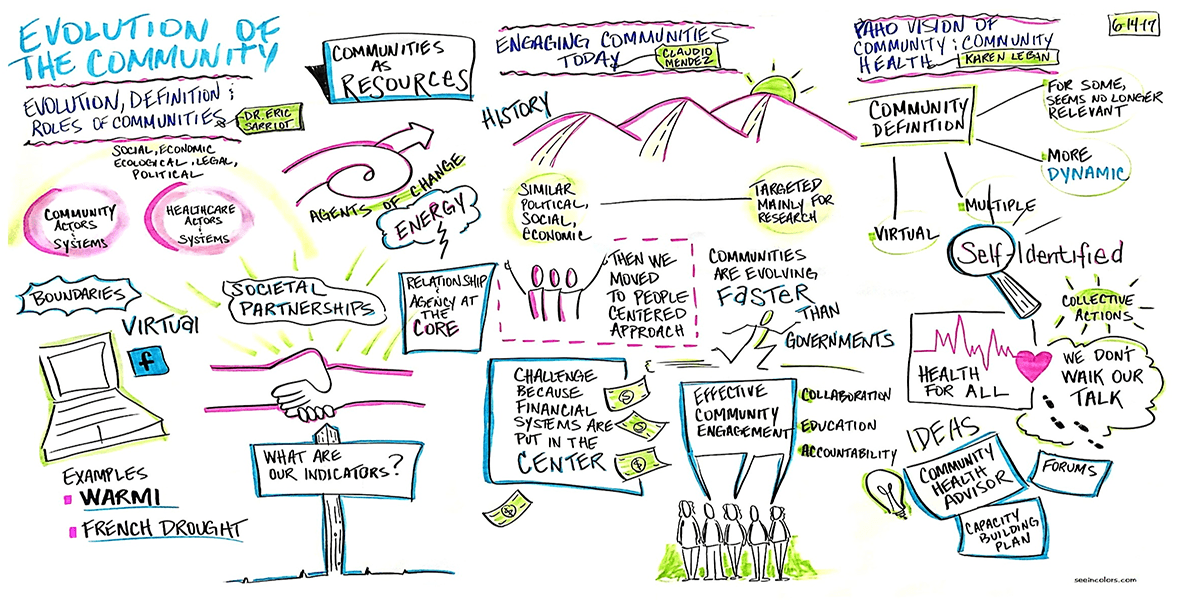 EVOLUTION OF
THE COMMUNITY
EVOLUTION, DEFINITION &
ROLES OF COMMUNITIES
DR. ERIC
SARRIOT
SOCIAL, ECONOMIC
ECOLOGICAL, LEGAL,
POLITICAL
COMMUNITY
ACTORS
&
SYSTEMS
HEALTHCARE
ACTORS
&
SYSTEMS
BOUNDARIES
VIRTUAL
f
EXAMPLES
WARMI
FRENCH DROUGHT
COMMUNITIES
AS
RESOURCES
AGENTS OF CHANGE
ENERGY
SOCIETAL
PARTNERSHIPS
RELATIONSHIP
& AGENCY AT
THE
CORE
WHAT ARE
OUR INDICATORS?
ENGAGING COMMUNITIES
TODAY
CLAUDIO
MENDEZ
HISTORY
SIMILAR
POLITICAL,
SOCIAL,
ECONOMIC
TARGETED
MAINLY FOR
RESEARCH
THEN WE
MOVED
TO PEOPLE
CENTERED
APPROACH
COMMUNITIES
ARE EVOLVING
FASTER
THAN
GOVERNMENTS
CHALLENGE
BECAUSE
FINANCIAL
SYSTEMS ARE
PUT IN THE
CENTER
$
$
$
$
EFFECTIVE
COMMUNITY
ENGAGEMENT
COLLABORATION
EDUCATION
ACCOUNTABILITY
PAHO VISION OF
COMMUNITY & COMMUNITY
HEALTH
KAREN LEBAN
6-14-17
COMMUNITY
DEFINITION
FOR SOME,
SEEMS NO LONGER
RELEVANT
MORE
DYNAMIC
MULTIPLE
VIRTUAL
Self-Identified
COLLECTIVE
ACTIONS
HEALTH
FOR ALL
WE DON'T
WALK OUR
TALK
IDEAS
COMMUNITY
HEALTH
ADVISOR
FORUMS
CAPACITY
BUILDING
PLAN
seeincolors.com